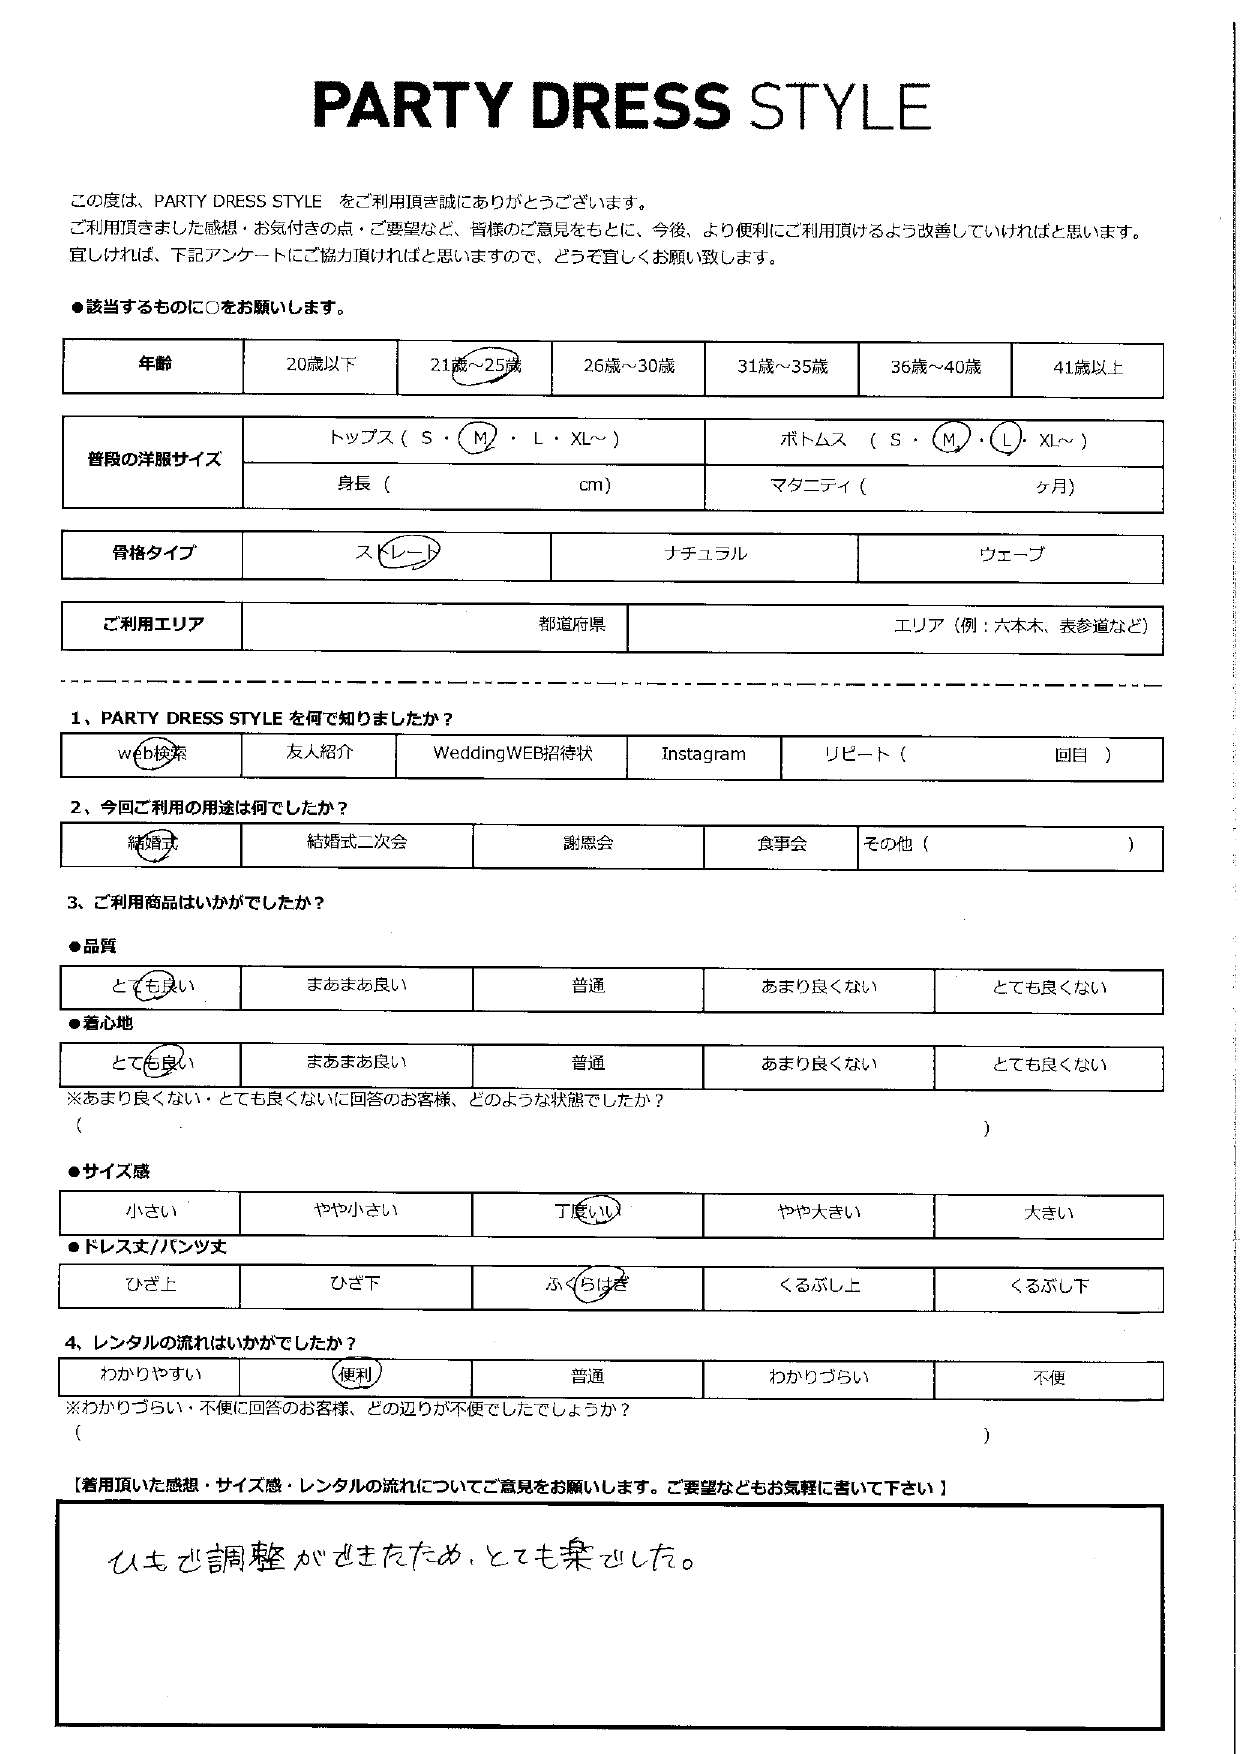 PARTY DRESS STYLE
この度は、PARTY DRESS STYLE　をご利用頂き誠にありがとうございます。
ご利用頂きました感想・お気付きの点・ご要望など、皆様のご意見をもとに、今後、より便利にご利用頂けるよう改善していければと思います。
宜しければ、下記アンケートにご協力頂ければと思いますので、どうぞ宜しくお願い致します。
●該当するものに○をお願いします。
年齢 20歳以下 21歳～25歳 26歳～30歳 31歳～35歳 36歳～40歳 41歳以上
普段の洋服サイズ
トップス ( S ・ M ・ L ・ XL～ ) ボトムス ( S ・ M ・ L ・ XL～ )
身長 ( cm) マタニティ ( ヶ月)
骨格タイプ ストレート ナチュラル ウェーブ
ご利用エリア 都道府県 エリア（例：六本木、表参道など）
1、PARTY DRESS STYLE を何で知りましたか？
web検索 友人紹介 WeddingWEB招待状 Instagram リピート ( 回目 )
2、今回ご利用の用途は何でしたか？
結婚式 結婚式二次会 謝恩会 食事会 その他 ( )
3、ご利用商品はいかがでしたか？
●品質
とても良い まあまあ良い 普通 あまり良くない とても良くない
●着心地
とても良い まあまあ良い 普通 あまり良くない とても良くない
※あまり良くない・とても良くないに回答のお客様、どのような状態でしたか？
( )
●サイズ感
小さい やや小さい 丁度いい やや大きい 大きい
●ドレス丈/パンツ丈
ひざ上 ひざ下 ふくらはぎ くるぶし上 くるぶし下
4、レンタルの流れはいかがでしたか？
わかりやすい 便利 普通 わかりづらい 不便
※わかりづらい・不便に回答のお客様、どの辺りが不便でしたでしょうか？
( )
【着用頂いた感想・サイズ感・レンタルの流れについてご意見をお願いします。ご要望などもお気軽に書いて下さい 】
ひもで調整ができたため、とても楽でした。